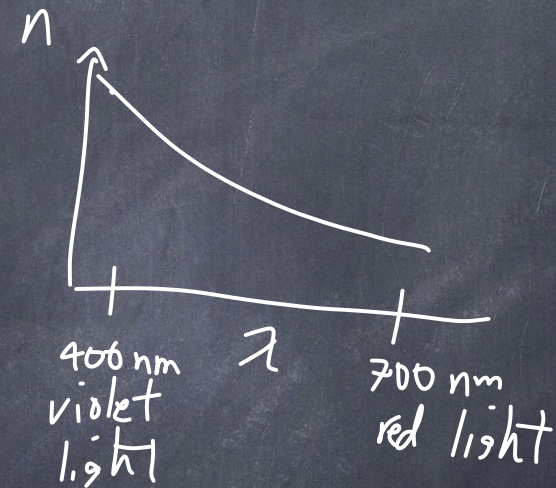 n
λ
400 nm
violet
light
700 nm
red light